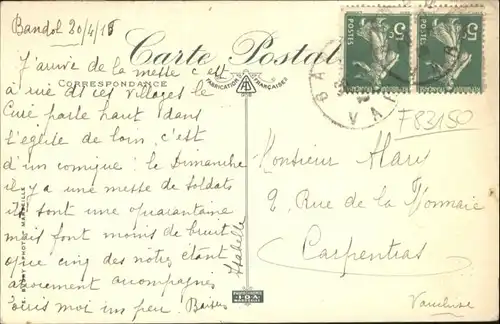 Bandol 20/4/15
Carte Postale
CORRESPONDANCE
FABRICATION FRANÇAISES
J'arrive de la messe c'est
à rire ds ces villages le
Curé parle haut dans
l'église de loin, c'est
d'un comique: le Dimanche
il y a une messe de soldats
ils sont une quarantaine
mais font moins de bruit
que cinq des notres étant
accompagnés
moi un peu. Baisers
Isabelle
POSTES 5c
POSTES 5c
VAR
F83150
Monsieur Mary
2, Rue de la Monnaie
Carpentras
Vaucluse
PHOT MARSEILLE